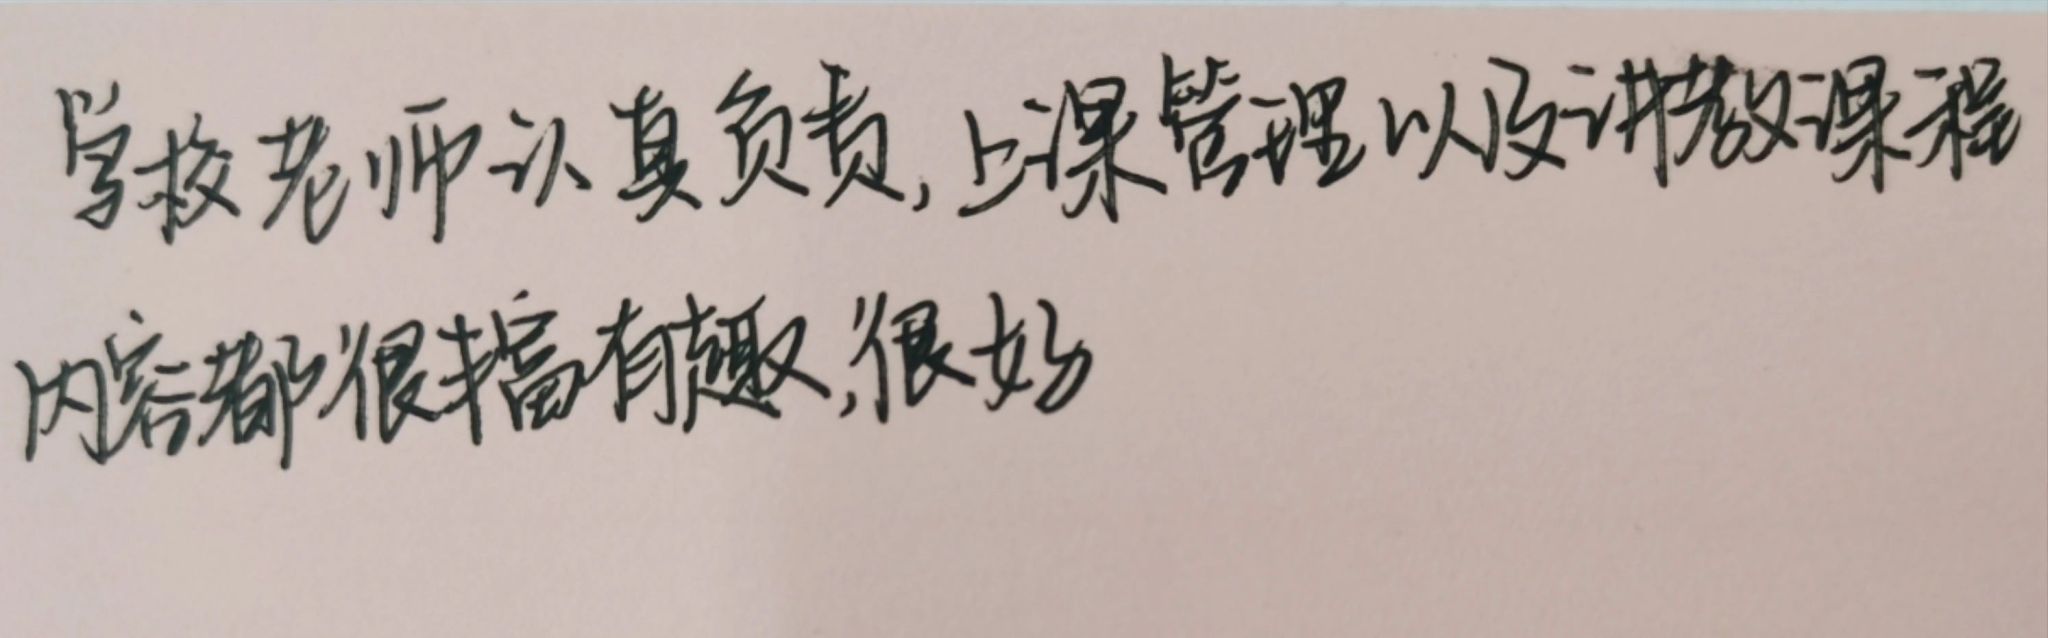 学校老师认真负责,上课管理以及讲教课程
内容都很丰富有趣,很好